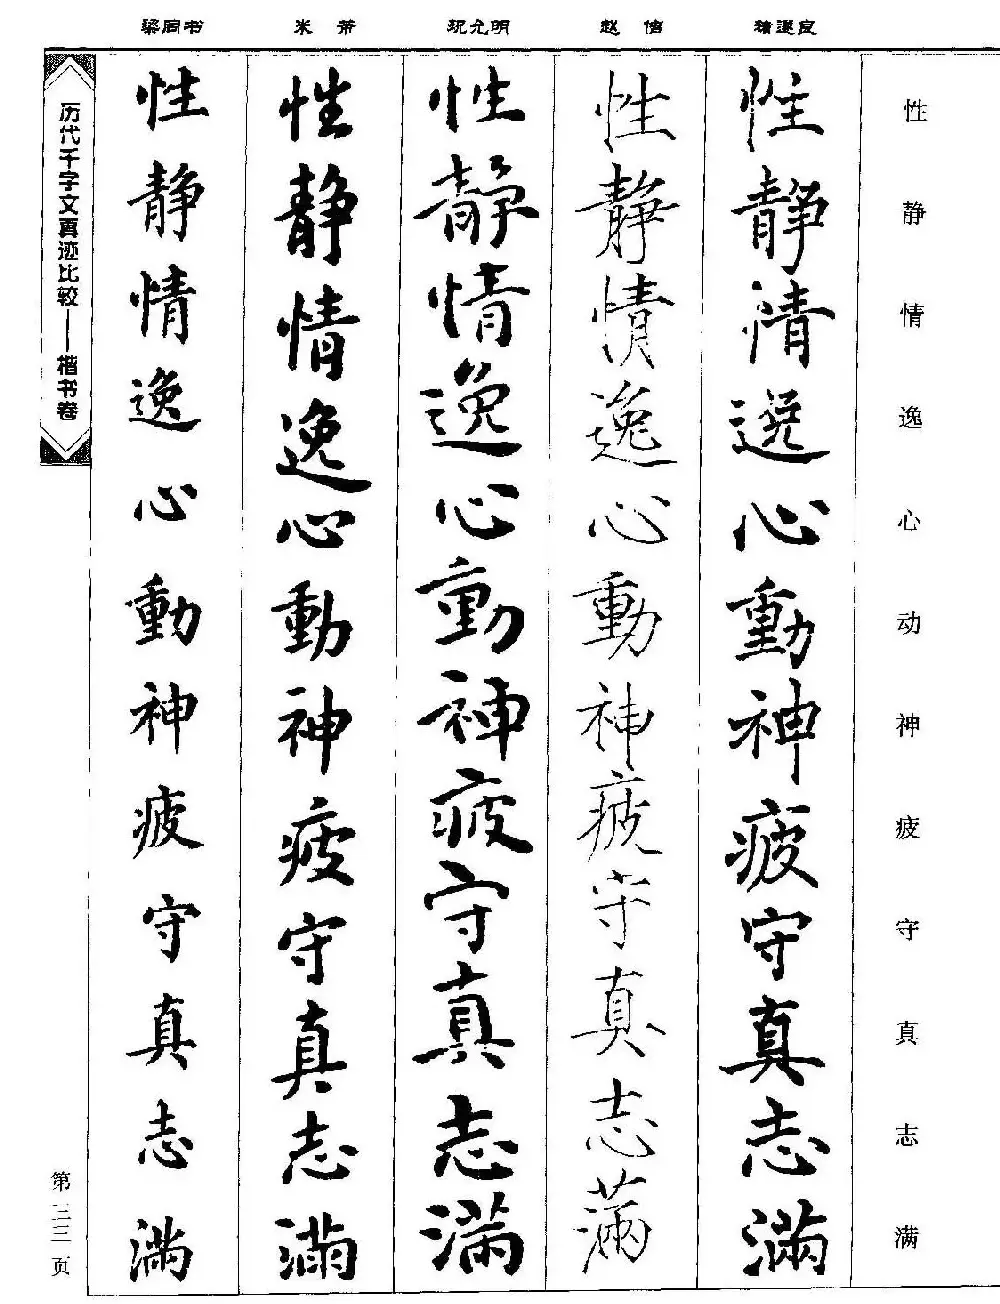 性静情逸心动神疲守真志满
褚遂良
性静情逸心動神疲守真志滿
赵佶
性静情逸心動神疲守真志滿
祝允明
性静情逸心動神疲守真志滿
米芾
性静情逸心動神疲守真志滿
梁同书
性静情逸心動神疲守真志滿
历代千字文真迹比较——楷书卷
第三三页